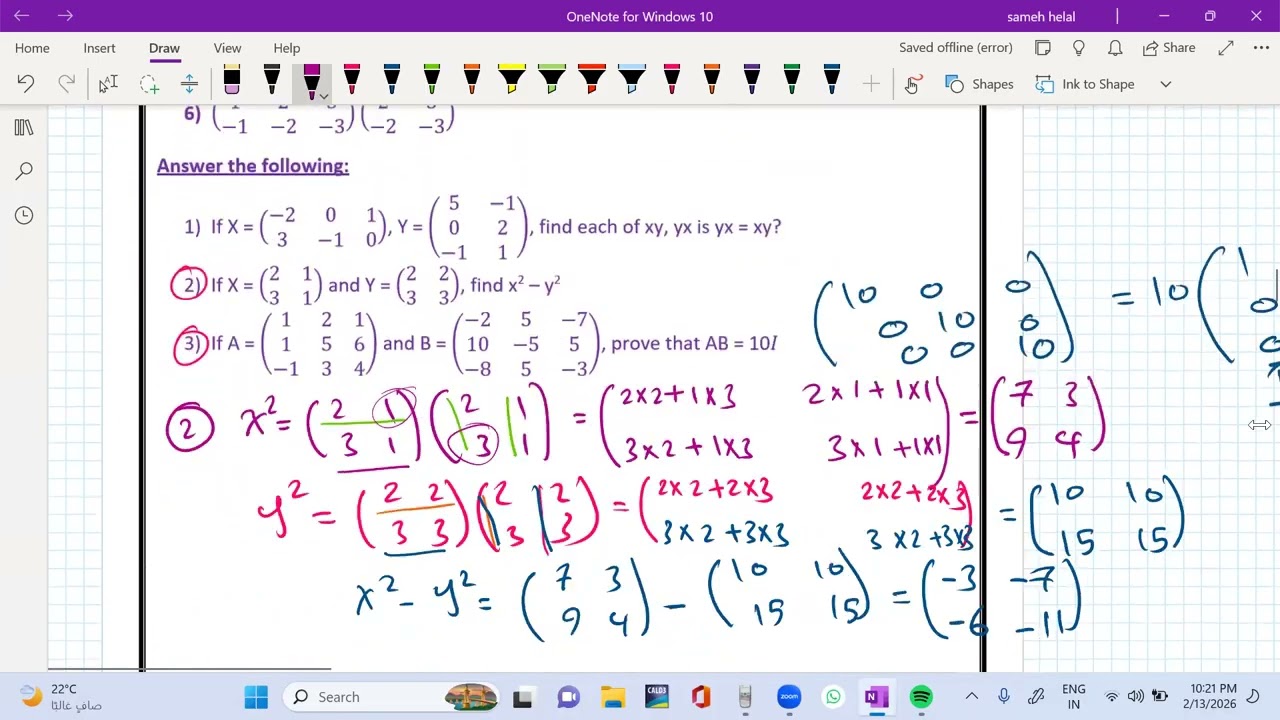 OneNote for Windows 10
sameh helal
Home Insert Draw View Help
Saved offline (error) Share
Shapes Ink to Shape
6) (−1 −2 −3) (−2 −3)
Answer the following:
1) If X = (−2 0 1 / 3 −1 0), Y = (5 −1 / 0 2 / −1 1), find each of xy, yx is yx = xy?
2) If X = (2 1 / 3 1) and Y = (2 2 / 3 3), find x² − y²
(10 0 0 / 0 10 0 / 0 0 10) = 10(1 / 0 / 0
3) If A = (1 2 1 / 1 5 6 / −1 3 4) and B = (−2 5 −7 / 10 −5 5 / −8 5 −3), prove that AB = 10I
2 x² = (2 1 / 3 1) (2 1 / 3 1) = (2x2+1x3 2x1+1x1 / 3x2+1x3 3x1+1x1) = (7 3 / 9 4)
y² = (2 2 / 3 3) (2 2 / 3 3) = (2x2+2x3 2x2+2x3 / 3x2+3x3 3x2+3x3) = (10 10 / 15 15)
x² - y² = (7 3 / 9 4) - (10 10 / 15 15) = (-3 -7 / -6 -11)
22°C
صافي غالبًا
Search
CALDJ
zoom
ENG
IN
10:21 PM
2/13/2026